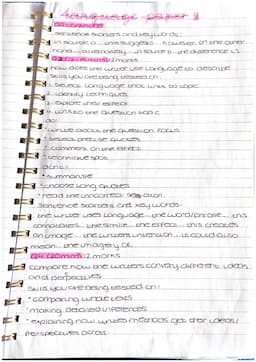 language paper 2
sentence starters and key words:
in source a... this suggests... however, on the other
hand... alternatively... in source b... the difference is...
12 marks
how does the writer use language to describe
skills you are being tested on:
1. select language that links to topic
2. identify techniques
3. explore their effect
4. link to the question topic
do:
write about the question focus
select precise quotes
comment on the effect
technique spot
don't:
summarise
choose long quotes
read the incorrect section
sentence starters and key words:
the writer uses language... the word/phrase... this
connotates... the simile... the effect... this creates
an image... the writers intention... it could also
mean... the imagery of
(20 mins) 12 marks
compare how the writers convey different ideas
and perspectives
skills you are being tested on:
comparing whole texts
making detailed inferences
explaining how writers methods get their ideas/
perspectives across